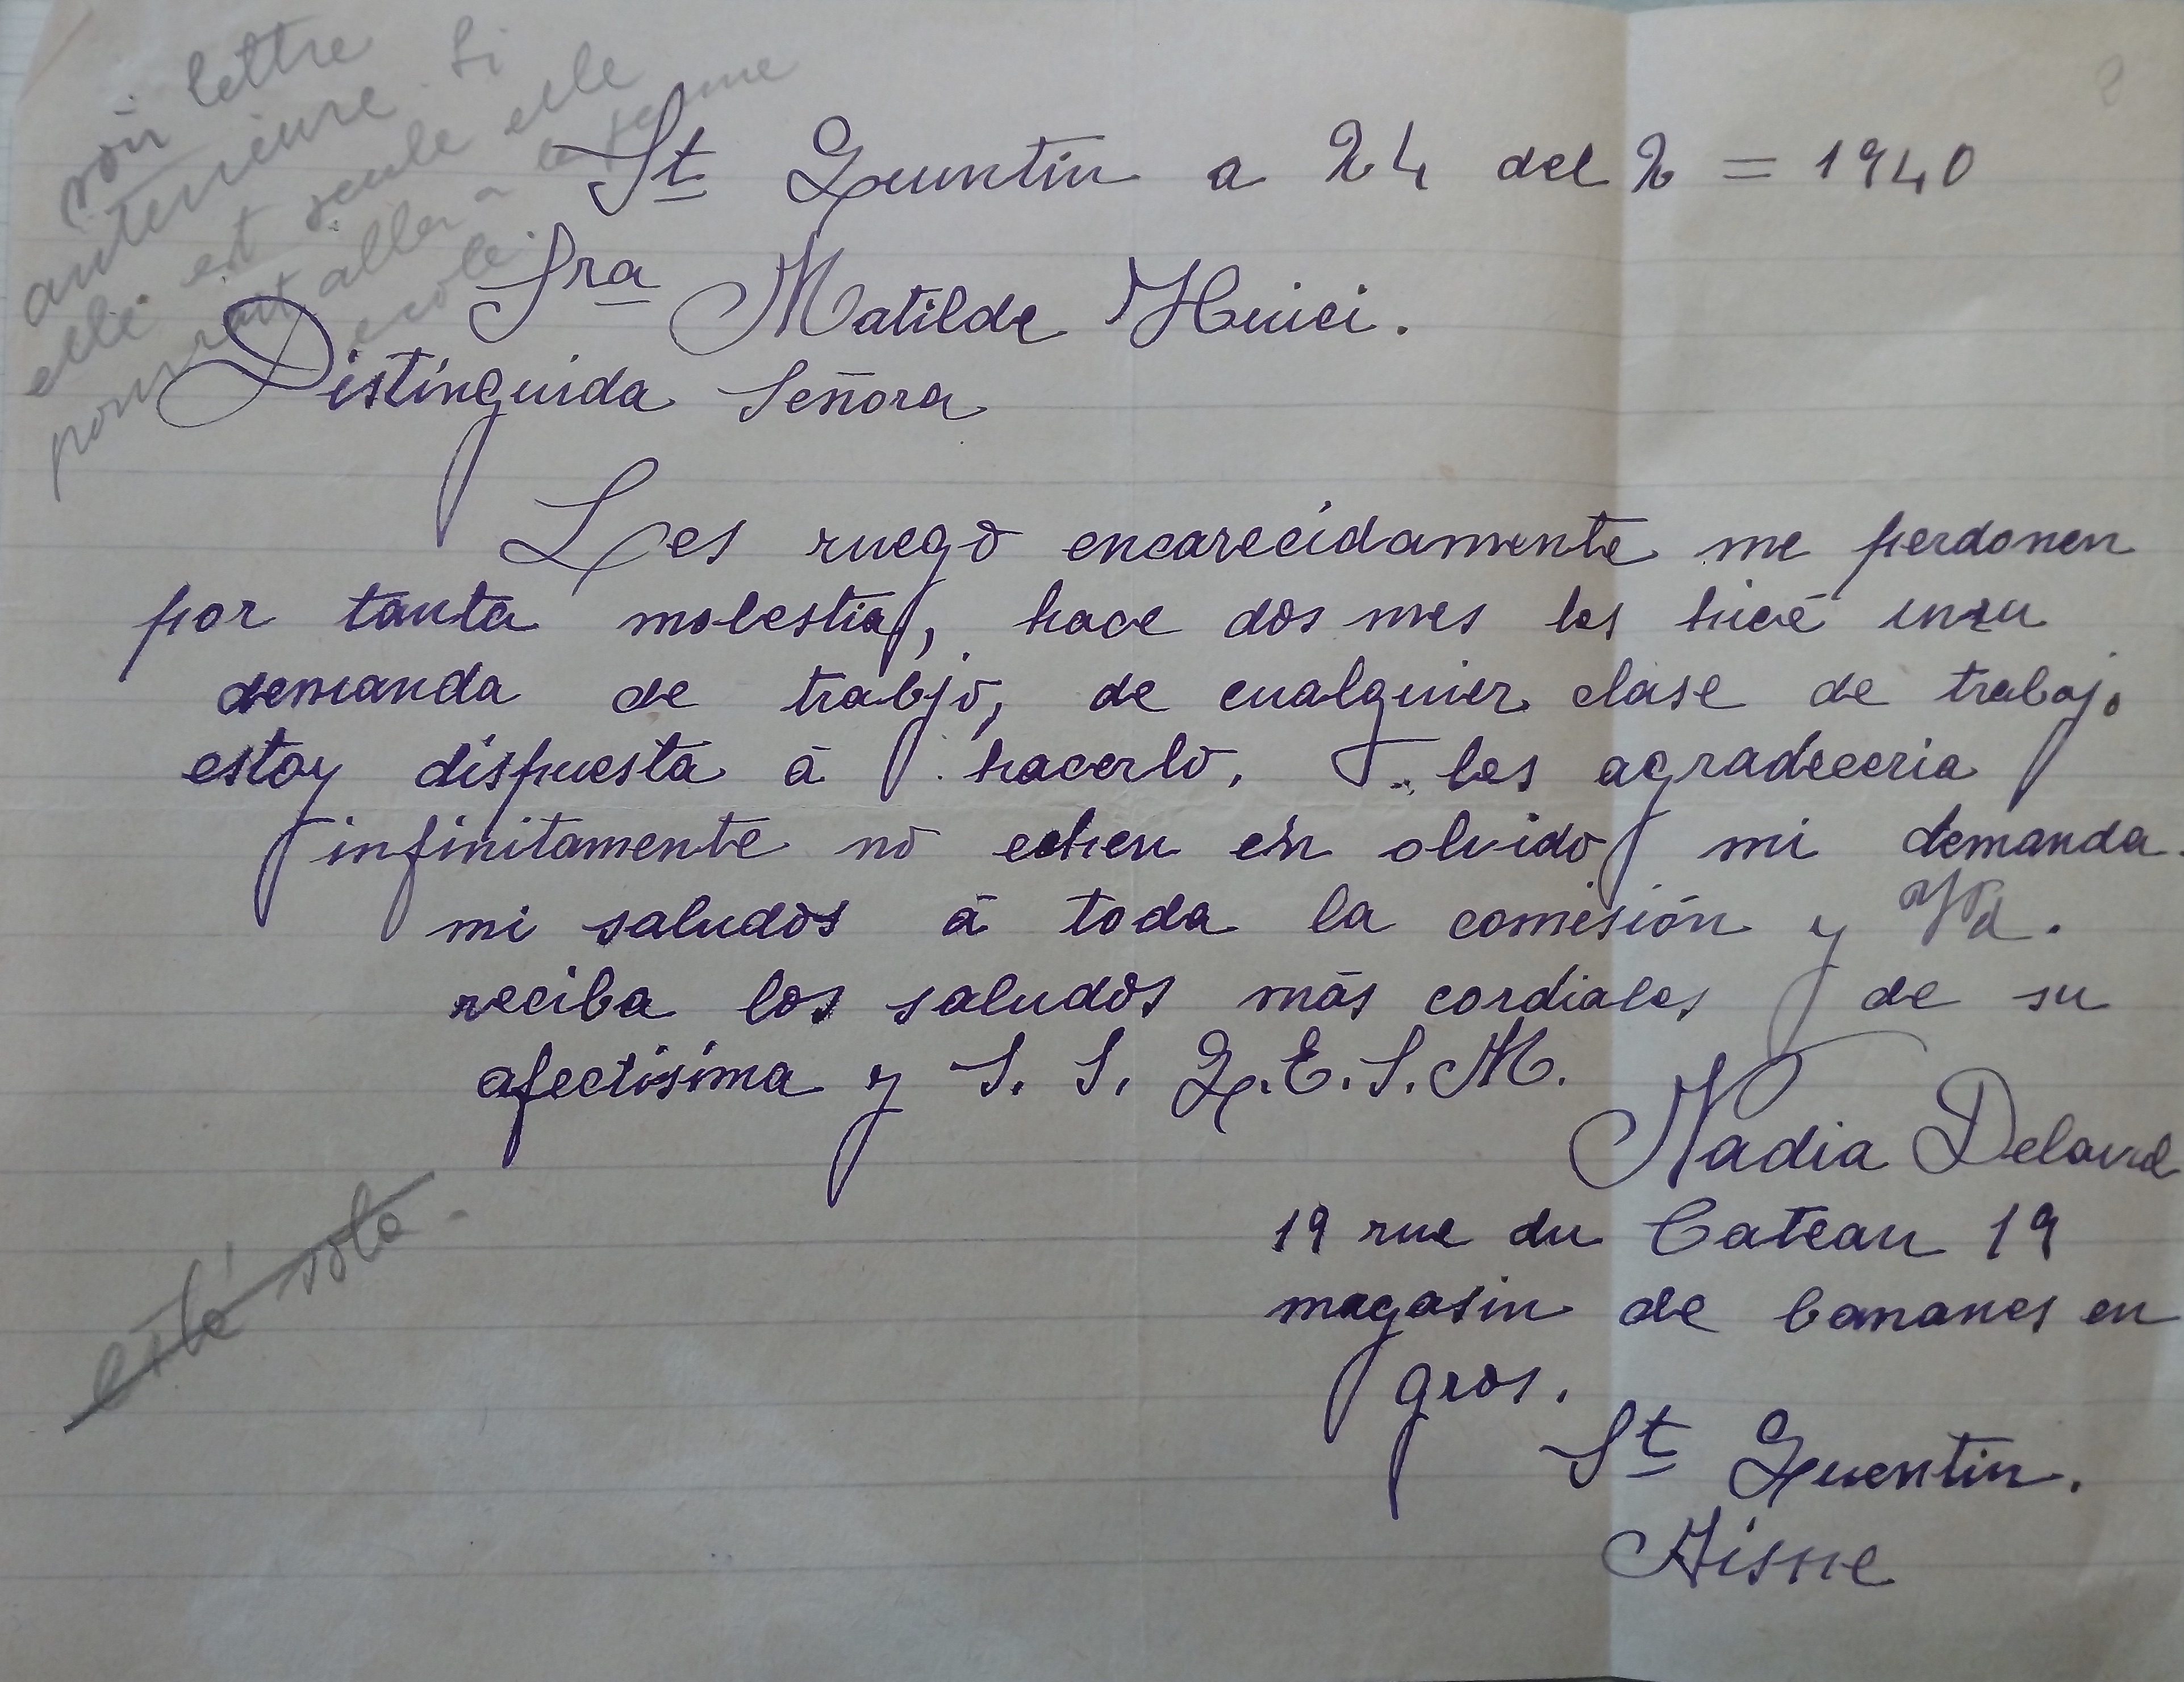 voir lettre
anterieure. Si
elle est seule elle
pourrait aller a la ferme
école.
St Quuntin a 24 del 2 = 1940
Sra Matilde Huici.
Distinguida Señora
Les ruego encarecidamente me perdonen
por tanta molestia, hace dos mes les hice una
demanda de trabjo, de cualquier clase de trabajo
estoy dispuesta á hacerlo, les agradeceria
infinitamente no echen en olvido mi demanda.
mi saludos á toda la comisión y Vd.
reciba los saludos más cordiales de su
afectisima y S. S. Q.E.S.M.
Nadia
19 rue du Cateau 19
magasin de bananes en
gros.
St Quentin.
Aisne
está sola.